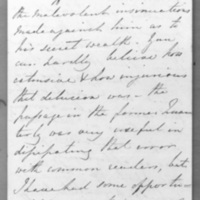 the malevolent insinuations
made against him as to
his secret wealth. You
can hardly believe how
extensive & how injurious
that delusion was. the
passage in the former Quar
terly was very useful in
dissipating that error,
with common readers, but
I have had some opportu-